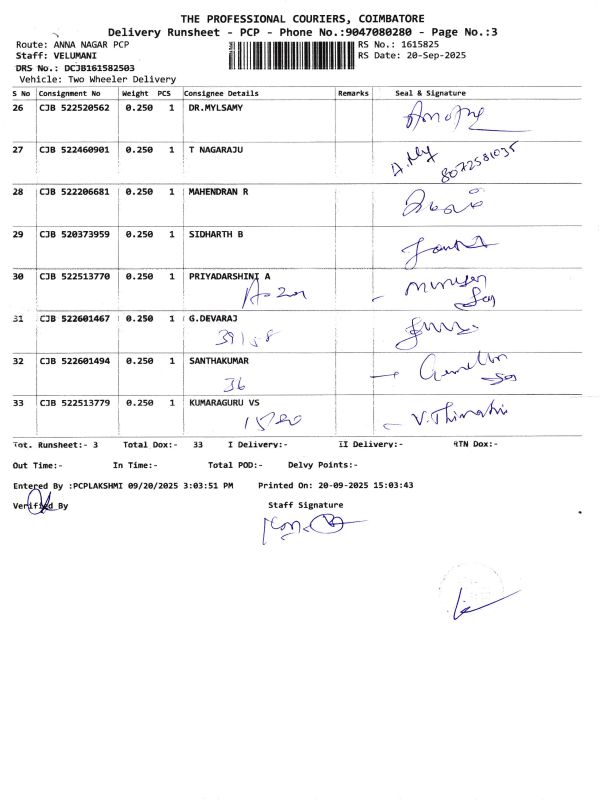 THE PROFESSIONAL COURIERS, COIMBATORE
Delivery Runsheet - PCP - Phone No.:9047080280 - Page No.:3
Route: ANNA NAGAR PCP RS No.: 1615825
Staff: VELUMANI RS Date: 20-Sep-2025
DRS No.: DCJB161582503
Vehicle: Two Wheeler Delivery
S No Consignment No Weight PCS Consignee Details Remarks Seal & Signature
26 CJB 522520562 0.250 1 DR.MYLSAMY
27 CJB 522460901 0.250 1 T NAGARAJU
8072581035
28 CJB 522206681 0.250 1 MAHENDRAN R
29 CJB 520373959 0.250 1 SIDHARTH B
30 CJB 522513770 0.250 1 PRIYADARSHINI A
31 CJB 522601467 0.250 1 G.DEVARAJ
32 CJB 522601494 0.250 1 SANTHAKUMAR
36
33 CJB 522513779 0.250 1 KUMARAGURU VS
Tot. Runsheet:- 3 Total Dox:- 33 I Delivery:- II Delivery:- RTN Dox:-
Out Time:- In Time:- Total POD:- Delvy Points:-
Entered By :PCPLAKSHMI 09/20/2025 3:03:51 PM Printed On: 20-09-2025 15:03:43
Verified By Staff Signature